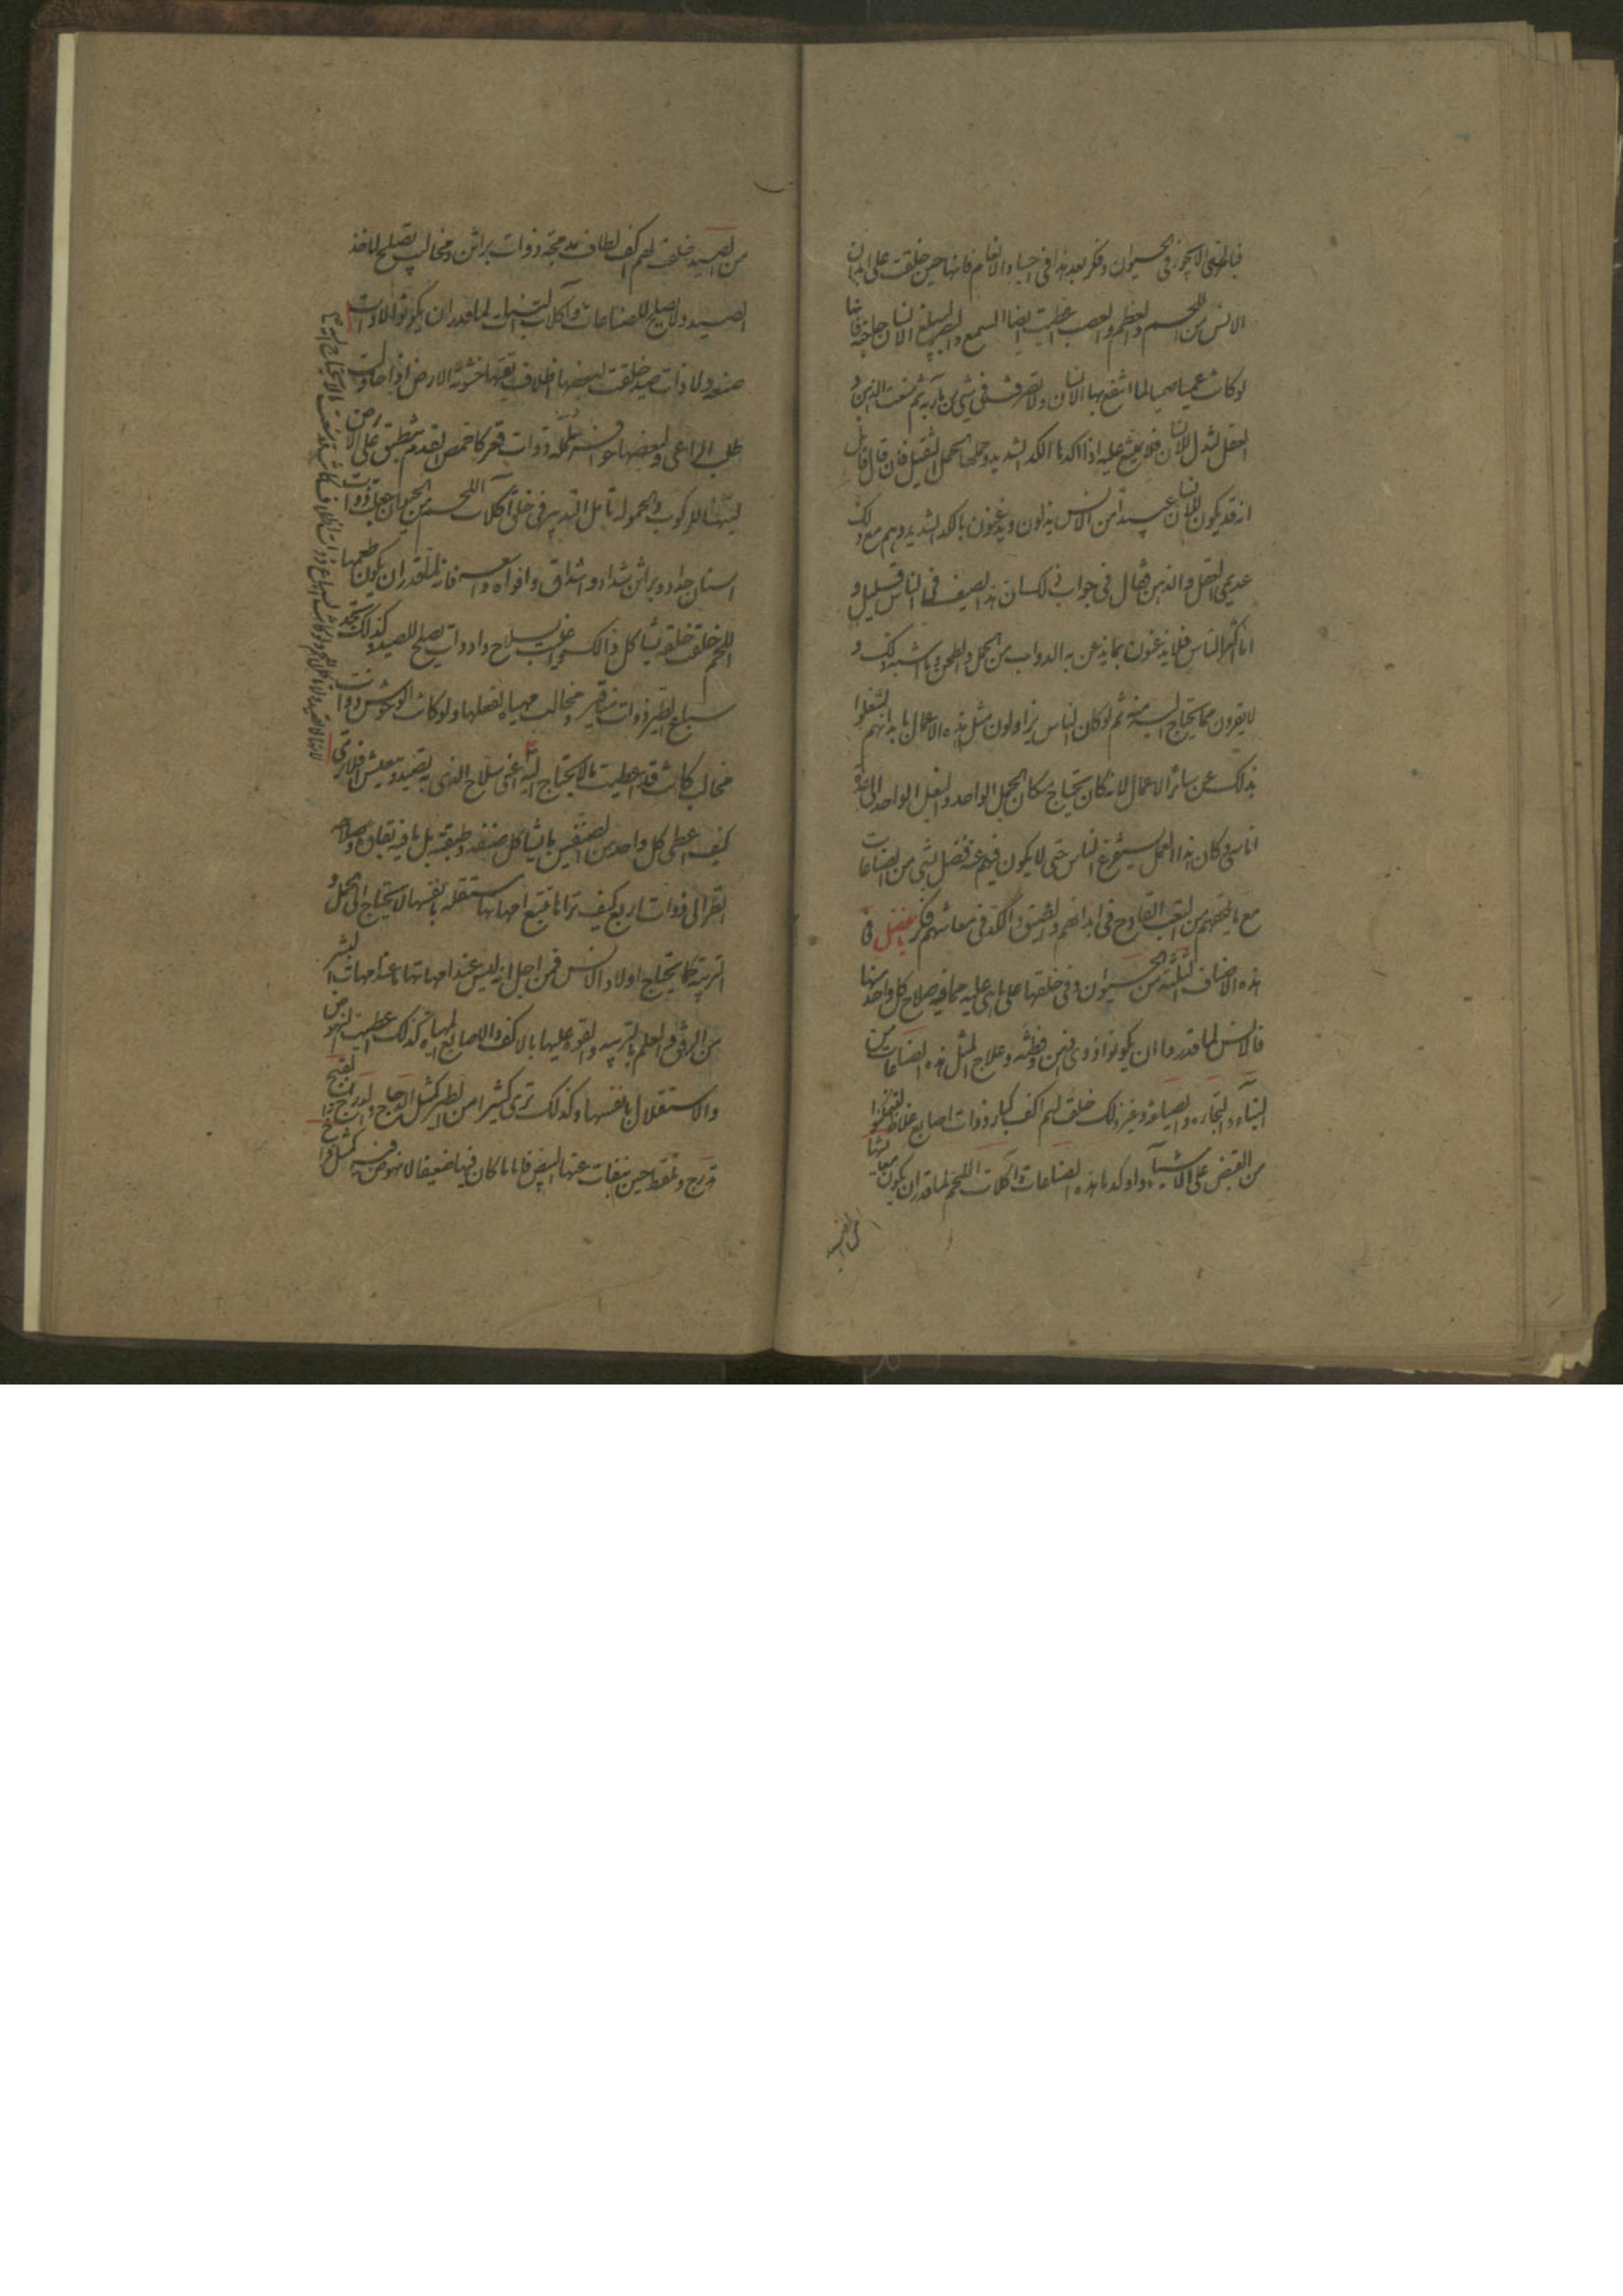 فباطن الاجور فى الحيوان وفكر بعد هذا فى اجساد الانعام فانها حين خلقت على ابدان
الانس من اللحم والعظم والعصب اعطيت ايضا السمع والبصر ليبلغ الانسان حاجته فانها
لو كانت عميا صميا لما انتفع بها الانسان ولا تصرفت فى شىء من مآربه ثم منعت الذهن و
العقل لتذل للانسان فلا تمتنع عليه اذا اكدها الكد الشديد وحملها الحمل الثقيل فان قال قائل
انه قد يكون للانسان عبيدا من الانس يذلون ويذعنون بالكد الشديد وهم مع ذلك
عديمى العقل والذهن فيقال فى جواب ذلك ان هذا الصنف فى الناس قليل و
اما اكثر الناس فلا يذعنون بما يذعن به الدواب من الحمل والطحن وما اشبه ذلك و
لا يقرون بما يحتاج اليه منه ثم لو كان الناس يزاولون مثل هذه الاعمال بابدانهم لشغلوا
بذلك عن سائر الاعمال لانه كان يحتاج مكان الجمل الواحد والبغل الواحد الى عدة
اناسى فكان هذا العمل يستفرغ الناس حتى لا يكون فيهم عنه فضل لشىء من الصناعات
مع ما يلحقهم من التعب الفادح فى ابدانهم والضيق والكد فى معاشهم فكر يا مفضل فى
هذه الاصناف الثلثة من الحيوان وفى خلقها على ما هى عليه مما فيه صلاح كل واحد منها
فالانس لما قدروا ان يكونوا ذوى ذهن وفطنة وعلاج لمثل هذه الصناعات من
البناء والتجارة والصياغة وغير ذلك خلقت لهم اكف كبار ذوات اصابع غلاظ ليتمكنوا
من القبض على الاشياء واوكدها هذه الصناعات وآكلات اللحم لما قدر ان يكون معايشها
من الصيد خلقت لهم اكف لطاف مدمجة ذوات براثن ومخاليب تصلح لاخذ
الصيد ولا تصلح للصناعات وآكلات النبات لما قدر ان يكونوا لا ذات
صنعة ولا ذات صيد خلقت لبعضها اظلاف تقيها خشونة الارض اذا حاولت
طلب المرعى ولبعضها حوافر ململمة ذوات قعر كاخمص القدم تنطبق على الارض
ليتهيأ للركوب والحمولة تامل التدبير فى خلق آكلات اللحم من الحيوان حين جعلت ذوات
اسنان حداد وبراثن شداد واشداق وافواه واسعة فانه لما قدر ان يكون طعمها
اللحم خلقت خلقة تشاكل ذلك واعينت بسلاح وادوات تصلح للصيد وكذلك تجد
سباع الطير ذوات مناقير ومخالب مهياة لفعلها ولو كانت الوحوش ذوات
مخالب كانت قد اعطيت ما لا يحتاج اليه اعنى السلاح الذى به تصيد وتعيش افلا ترى
كيف اعطى كل واحد من الصنفين ما يشاكل صنفه وطبقته بل ما فيه بقاؤه وصلاحه
انظر الى ذوات الاربع كيف تراها تتبع امهاتها مستقلة بانفسها لا تحتاج الى الحمل و
التربية كما يحتاج اولاد الانس فمن اجل انه ليس عند امهاتها ما عند امهات البشر
من الرفق والعلم بالتربية والقوة عليها بالاكف والاصابع المهياة لذلك اعطيت النهوض
والاستقلال بانفسها وكذلك ترى كثيرا من الطير كمثل الدجاج والدراج والقبج
تدرج وتلقط حين ينقات عنها البيض فاما ما كان فيها ضعيفا لا نهوض فيه كمثل فراخ